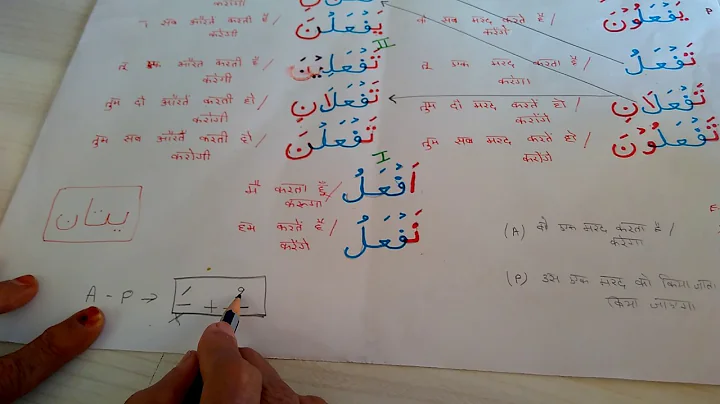 वे सब औरतें करती हैं / يَفْعَلْنَ वे सब मर्द करते हैं / يَفْعَلُوْنَ
करेंगी करेंगे
II
तू एक औरत करती है / تَفْعَلِيْنَ तू एक मरद करता है / تَفْعَلُ
करेगी करेगा
तुम दो औरतें करती हो / تَفْعَلَانِ तुम दो मरद करते हो / تَفْعَلَانِ
करोगी करोगे
तुम सब औरतें करती हो / تَفْعَلْنَ तुम सब मरद करते हो / تَفْعَلُوْنَ
करोगी करोगे
I
मैं करता हूँ / اَفْعَلُ
करूंगा
हम करते हैं / نَفْعَلُ
करेंगे
يتان
(A) वो एक मरद करता है /
करेगा
A - P →
+
x
(P) उस एक मरद को किया जाता
किया जाएगा